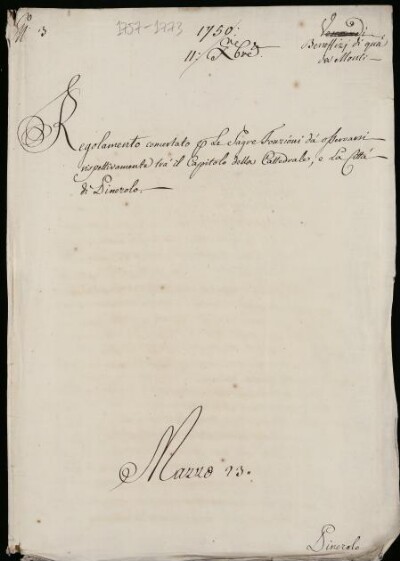 N.° 3
1757-1773
1750.
11: Xbre.
Beneffizj di quà
da Monti
Regolamento concertato p Le Sagre Fonzioni da osservarsi
rispettivamente trà il Capitolo della Cattedrale, e La Città
di Pinerolo.
Mazzo 23.
Pinerolo